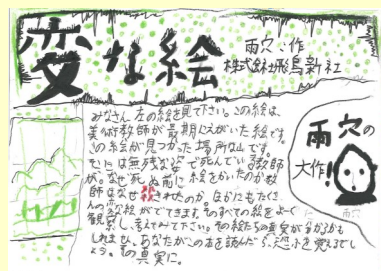 変な絵
雨穴・作
株式会社飛鳥新社
みなさん左の絵を見て下さい。この絵は、
美術教師が最期にえがいた絵です。
この絵が見つかった場所は山です。
そこには無残な姿で死んでいる教師
が。なぜ死ぬ前に絵をかいたのか教
師はなぜ殺されたのか。ほかにもたくさ
んの変な絵がでてきます。そのすべての絵をよーく
観察し、考えてみて下さい。その絵たちの真実が分かるかも
しれません。あなたがこの本を読んだら、恐ふを覚えるでし
ょう。その真実に。
雨穴の
大作!
雨穴